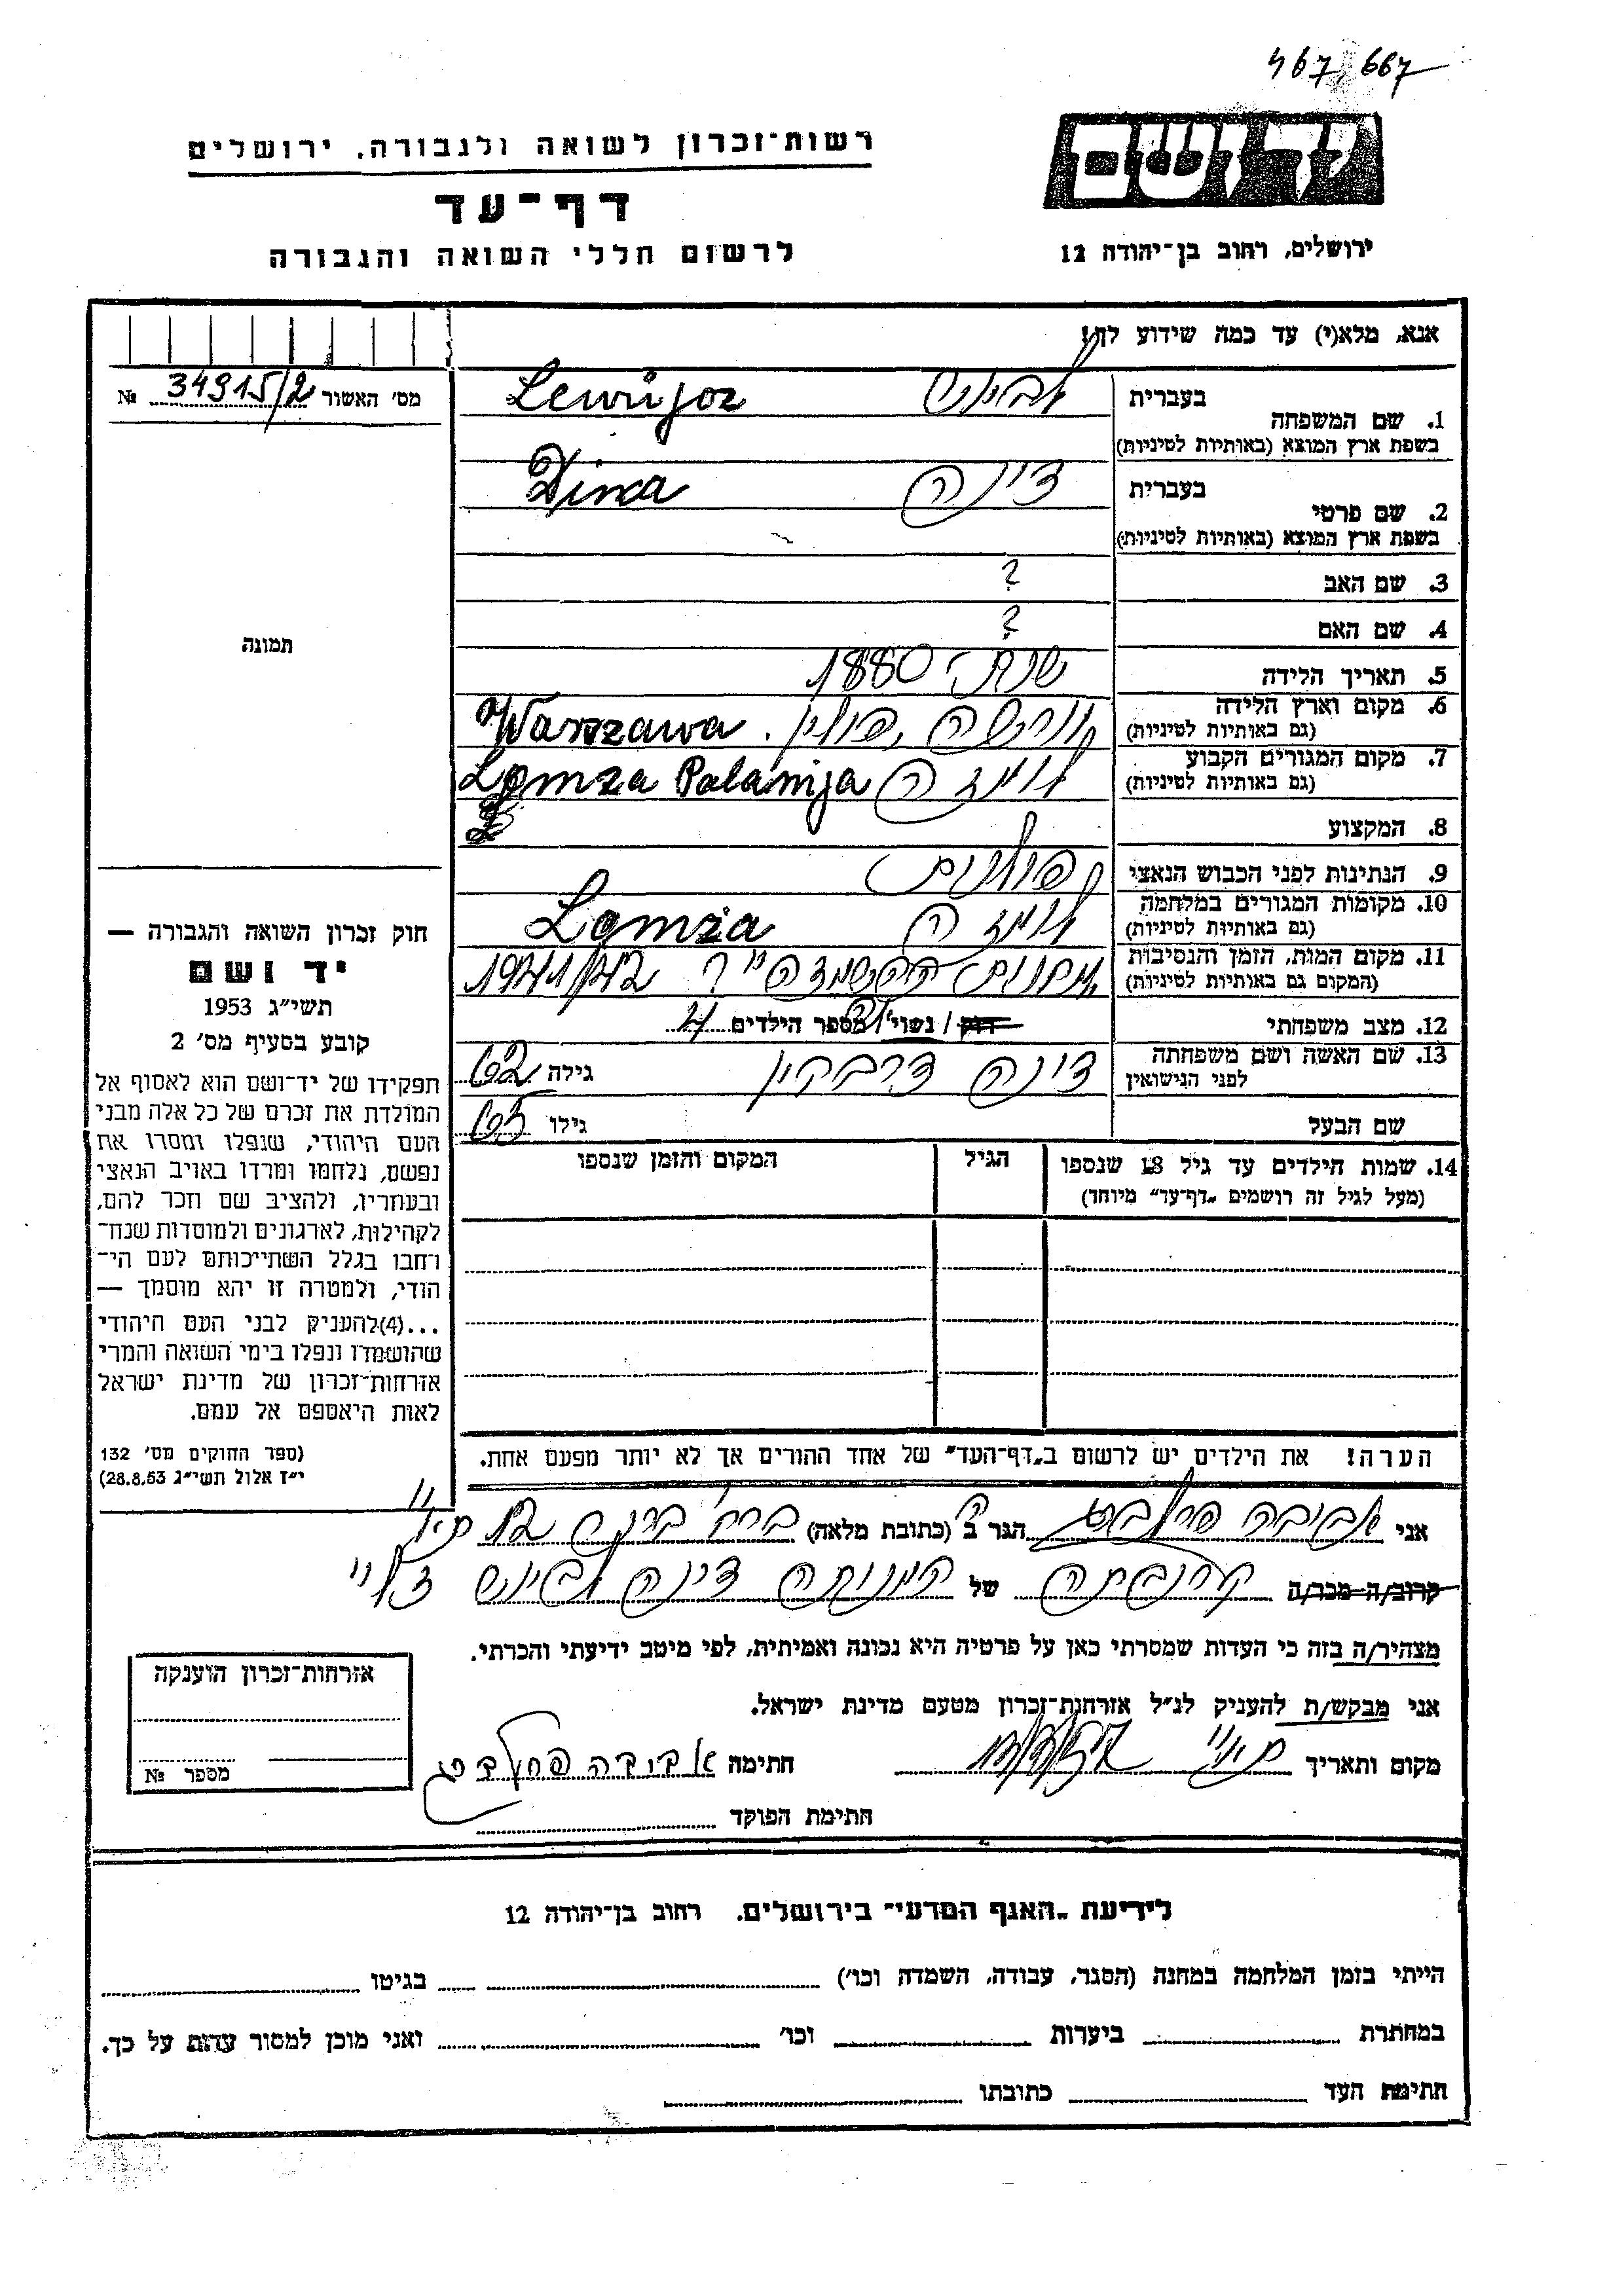 467,667
רשות-זכרון לשואה ולגבורה, ירושלים
יד ושם
דף-עד
לרשום חללי השואה והגבורה
ירושלים, רחוב בן-יהודה 12
אנא, מלא(י) עד כמה שידוע לך!
מס' האשור № 34915/2
1. שם המשפחה בעברית
בשפת ארץ המוצא (באותיות לטיניות)
2. שם פרטי בעברית דינה Dina
בשפת ארץ המוצא (באותיות לטיניות)
3. שם האב ?
4. שם האם ?
5. תאריך הלידה שנת 1880
6. מקום וארץ הלידה ורשה, פולין. Warszawa
(גם באותיות לטיניות)
7. מקום המגורים הקבוע לומזה Lomza Polanija
(גם באותיות לטיניות)
8. המקצוע
9. הנתינות לפני הכבוש הנאצי פולנית
10. מקומות המגורים במלחמה לומזה Lomża
(גם באותיות לטיניות)
11. מקום המות, הזמן והנסיבות 1941/42
(המקום גם באותיות לטיניות)
12. מצב משפחתי רוק / נשוי / מספר הילדים
13. שם האשה ושם משפחתה לפני הנישואין דינה דרבקין גילה 62
שם הבעל גילו 65
14. שמות הילדים עד גיל 18 שנספו הגיל המקום והזמן שנספו
(מעל לגיל זה רושמים "דף-עד" מיוחד)
הערה! את הילדים יש לרשום ב"דף-העד" של אחד ההורים אך לא יותר מפעם אחת.
תמונה
חוק זכרון השואה והגבורה —
יד ושם
תשי"ג 1953
קובע בסעיף מס' 2
תפקידו של יד-ושם הוא לאסוף אל
המולדת את זכרם של כל אלה מבני
העם היהודי, שנפלו ומסרו את
נפשם, נלחמו ומרדו באויב הנאצי
ובעוזריו, ולהציב שם וזכר להם,
לקהילות, לארגונים ולמוסדות שנח-
רבו בגלל השתייכותם לעם הי-
הודי, ולמטרה זו יהא מוסמך —
...(4)להעניק לבני העם היהודי
שהושמדו ונפלו בימי השואה והמרי
אזרחות-זכרון של מדינת ישראל
לאות היאספם אל עמם.
(ספר החוקים מס' 132
י"ז אלול תשי"ג 28.8.53)
אני אביבה הגר ב (כתובת מלאה)
קרוב/ה מכר/ה קרובתה של המנוחה דינה
מצהיר/ה בזה כי העדות שמסרתי כאן על פרטיה היא נכונה ואמיתית, לפי מיטב ידיעתי והכרתי.
אני מבקש/ת להעניק לנ"ל אזרחות-זכרון מטעם מדינת ישראל.
מקום ותאריך חתימה אביבה
חתימת הפוקד
אזרחות-זכרון הוענקה
מספר №
לידיעת "האגף המדעי" בירושלים, רחוב בן-יהודה 12
הייתי בזמן המלחמה במחנה (הסגר, עבודה, השמדה וכו') בגיטו
במחתרת ביערות וכו' ואני מוכן למסור עדות על כך.
חתימת העד כתובתו